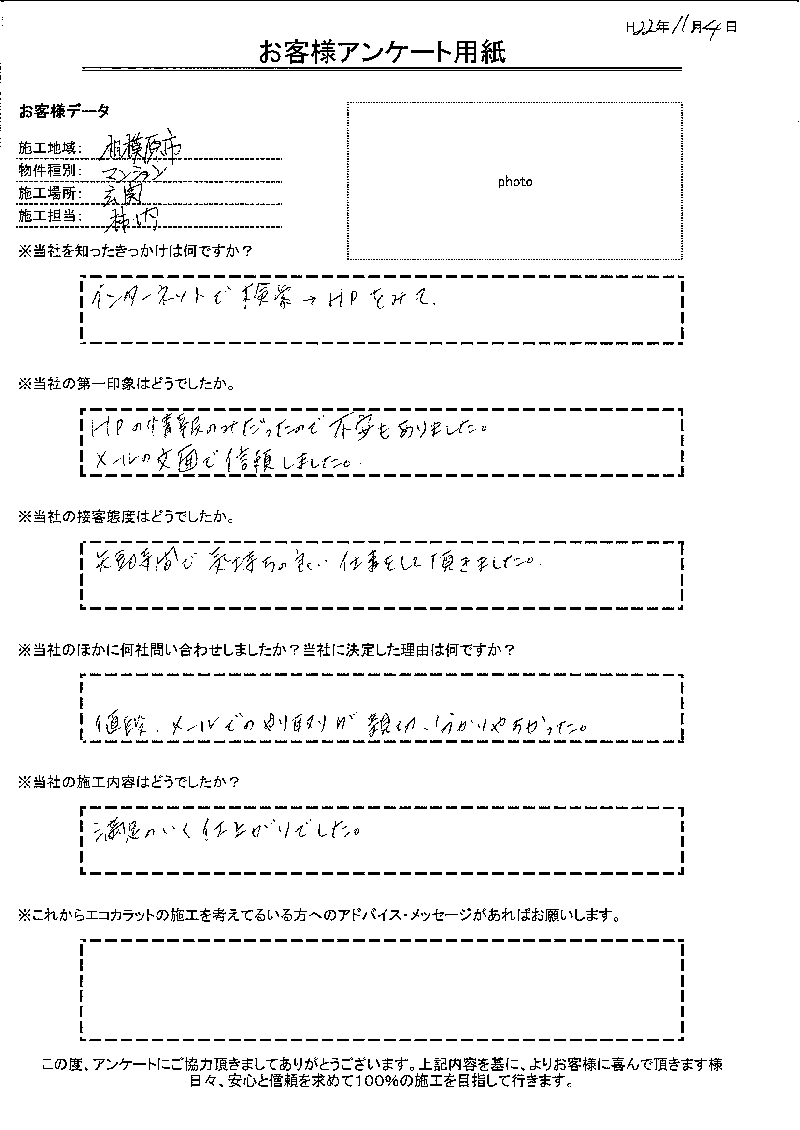 H22年11月4日
お客様アンケート用紙
お客様データ
施工地域： 相模原市
物件種別： マンション
施工場所： 玄関
施工担当： 柿内
photo
※当社を知ったきっかけは何ですか？
インターネットで検索→HPをみて.
※当社の第一印象はどうでしたか。
HPの情報のみだったので不安もありました。
メールの文面で信頼しました。
※当社の接客態度はどうでしたか。
気持ちの良い仕事をして頂きました。
※当社のほかに何社問い合わせしましたか？当社に決定した理由は何ですか？
値段、メールでのやり取りが親切、分かりやすかった。
※当社の施工内容はどうでしたか？
満足のいく仕上がりでした。
※これからエコカラットの施工を考えてるいる方へのアドバイス・メッセージがあればお願いします。
この度、アンケートにご協力頂きましてありがとうございます。上記内容を基に、よりお客様に喜んで頂きます様
日々、安心と信頼を求めて100％の施工を目指して行きます。